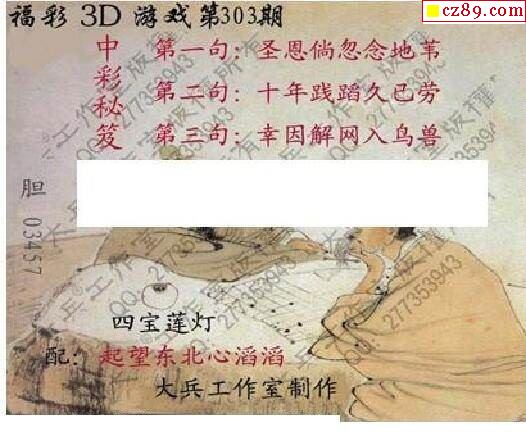 福彩 3D 游戏第303期
cz89.com
中彩秘笈
第一句：圣恩倘忽念地苇
第二句：十年践蹈久已劳
第三句：幸因解网入鸟兽
胆 03457
四宝莲灯
配：起望东北心滔滔
大兵工作室制作
大兵工作室版权所有
QQ:277353943